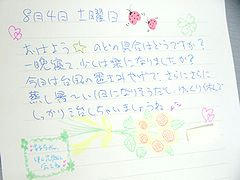 8月4日 土曜日
おはよう☆のどの具合はどうですか?
一晩寝て少しは楽になりましたか?
今日は台風の置きみやげで、さらにさらに
蒸し暑〜い1日になりそうだし、ゆっくり休んで
しっかり治しちゃいましょうね